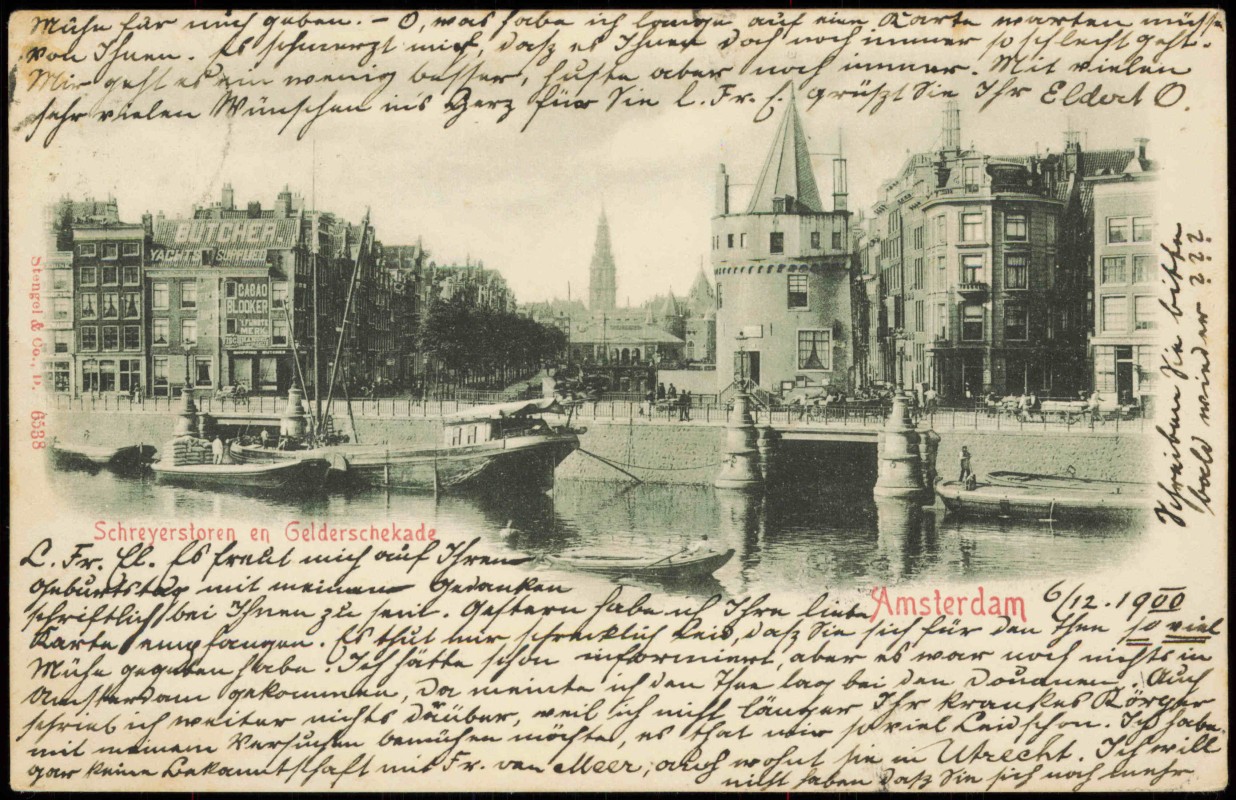 Mühe für mich gaben. – O, was habe ich lange auf eine Karte warten müssen
von Ihnen. Es schmerzt mich, dasz es Ihnen doch noch immer so schlecht geht.
Mir geht es ein wenig besser, huste aber noch immer. Mit vielen
sehr vielen Wünschen in's Herz für Sie l. Fr. E. grüszt Sie Ihr Eldert O.
BUTCHER
YACHTS SUPPLIED
CACAO
BLOOKER
MERK
Stengel & Co., D. 6538
Schreiben Sie bitte
bald wieder ? ? ?
Schreyerstoren en Gelderschekade
Amsterdam
6/12.1900
L. Fr. El. Es freut mich auf Ihren
Geburtstag mit meinen Gedanken
schriftlich bei Ihnen zu sein. Gestern habe ich Ihre liebe
Karte empfangen. Es thut mir schrecklich Leid, dasz Sie sich für den Thee so viel
Mühe gegeben habe. Ich hätte schon informiert, aber es war noch nichts in
Amsterdam gekommen, da meinte ich den Thee lag bei den Douanen. Auch
schrieb ich weiter nichts darüber, weil ich nicht länger Ihr krankes Körper
mit meinem Versuchen bemühen mochte, es that mir so viel Leid schon. Ich habe
gar keine Bekanntschaft mit Fr. van Meer, auch wohnt sie in Utrecht. Ich will
nicht haben dasz Sie sich noch mehr